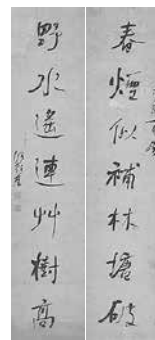 春煙似補林塘破
野水遙連艸樹高